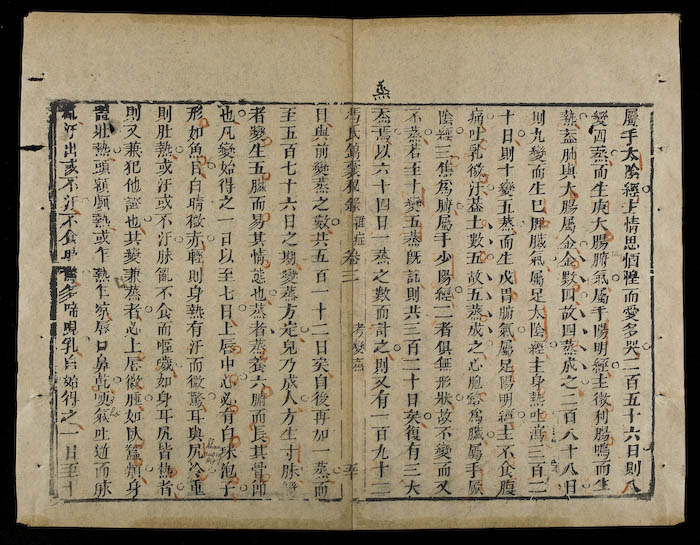 蒸
屬手太陰經主情思惆惶而愛多哭二百五十六日則八
變四蒸而生庚大腸腑氣屬手陽明經主微利腸鳴而生
蒸蓋肺與大腸屬金金數四故四蒸成之二百八十八日
則九變而生巳脾臟氣屬足太陰經主身熱吐瀉三百二
十日則十變五蒸而生戊胃腑氣屬足陽明經主不食腹
痛吐乳微汗蓋土數五故五蒸成之心胞絡爲臟屬手厥
陰經三焦爲腑屬手少陽經二者俱無形狀故不變而又
不蒸若至十變五蒸既訖則共三百二十日矣復有三大
蒸焉以六十四日一蒸之數而計之則又有一百九十二
馮氏錦囊秘錄 雜症 卷三 考變蒸
日與前變蒸之數共五百一十二日矣自後再加一蒸而
至五百七十六日之期變蒸方完兒乃成人方生寸脉
者變生五臟而易其情態也蒸者蒸養六腑而長其骨節
也凡變始得之一日以至七日上唇中心必有白珠泡子
形如魚目白睛微赤輕則身熱有汗而微驚耳與尻冷重
則壯熱或汗或不汗脉亂不食而嘔歲如身耳尻皆熱者
則又兼犯他證也其變兼蒸者心上唇微腫如臥蠶頰身
體壯熱頭額顛熱或乍熱乍凉唇口鼻乾哽氣吐逆而脉
亂汗出或不汗不食時驚多啼睍乳白始得之一日至十